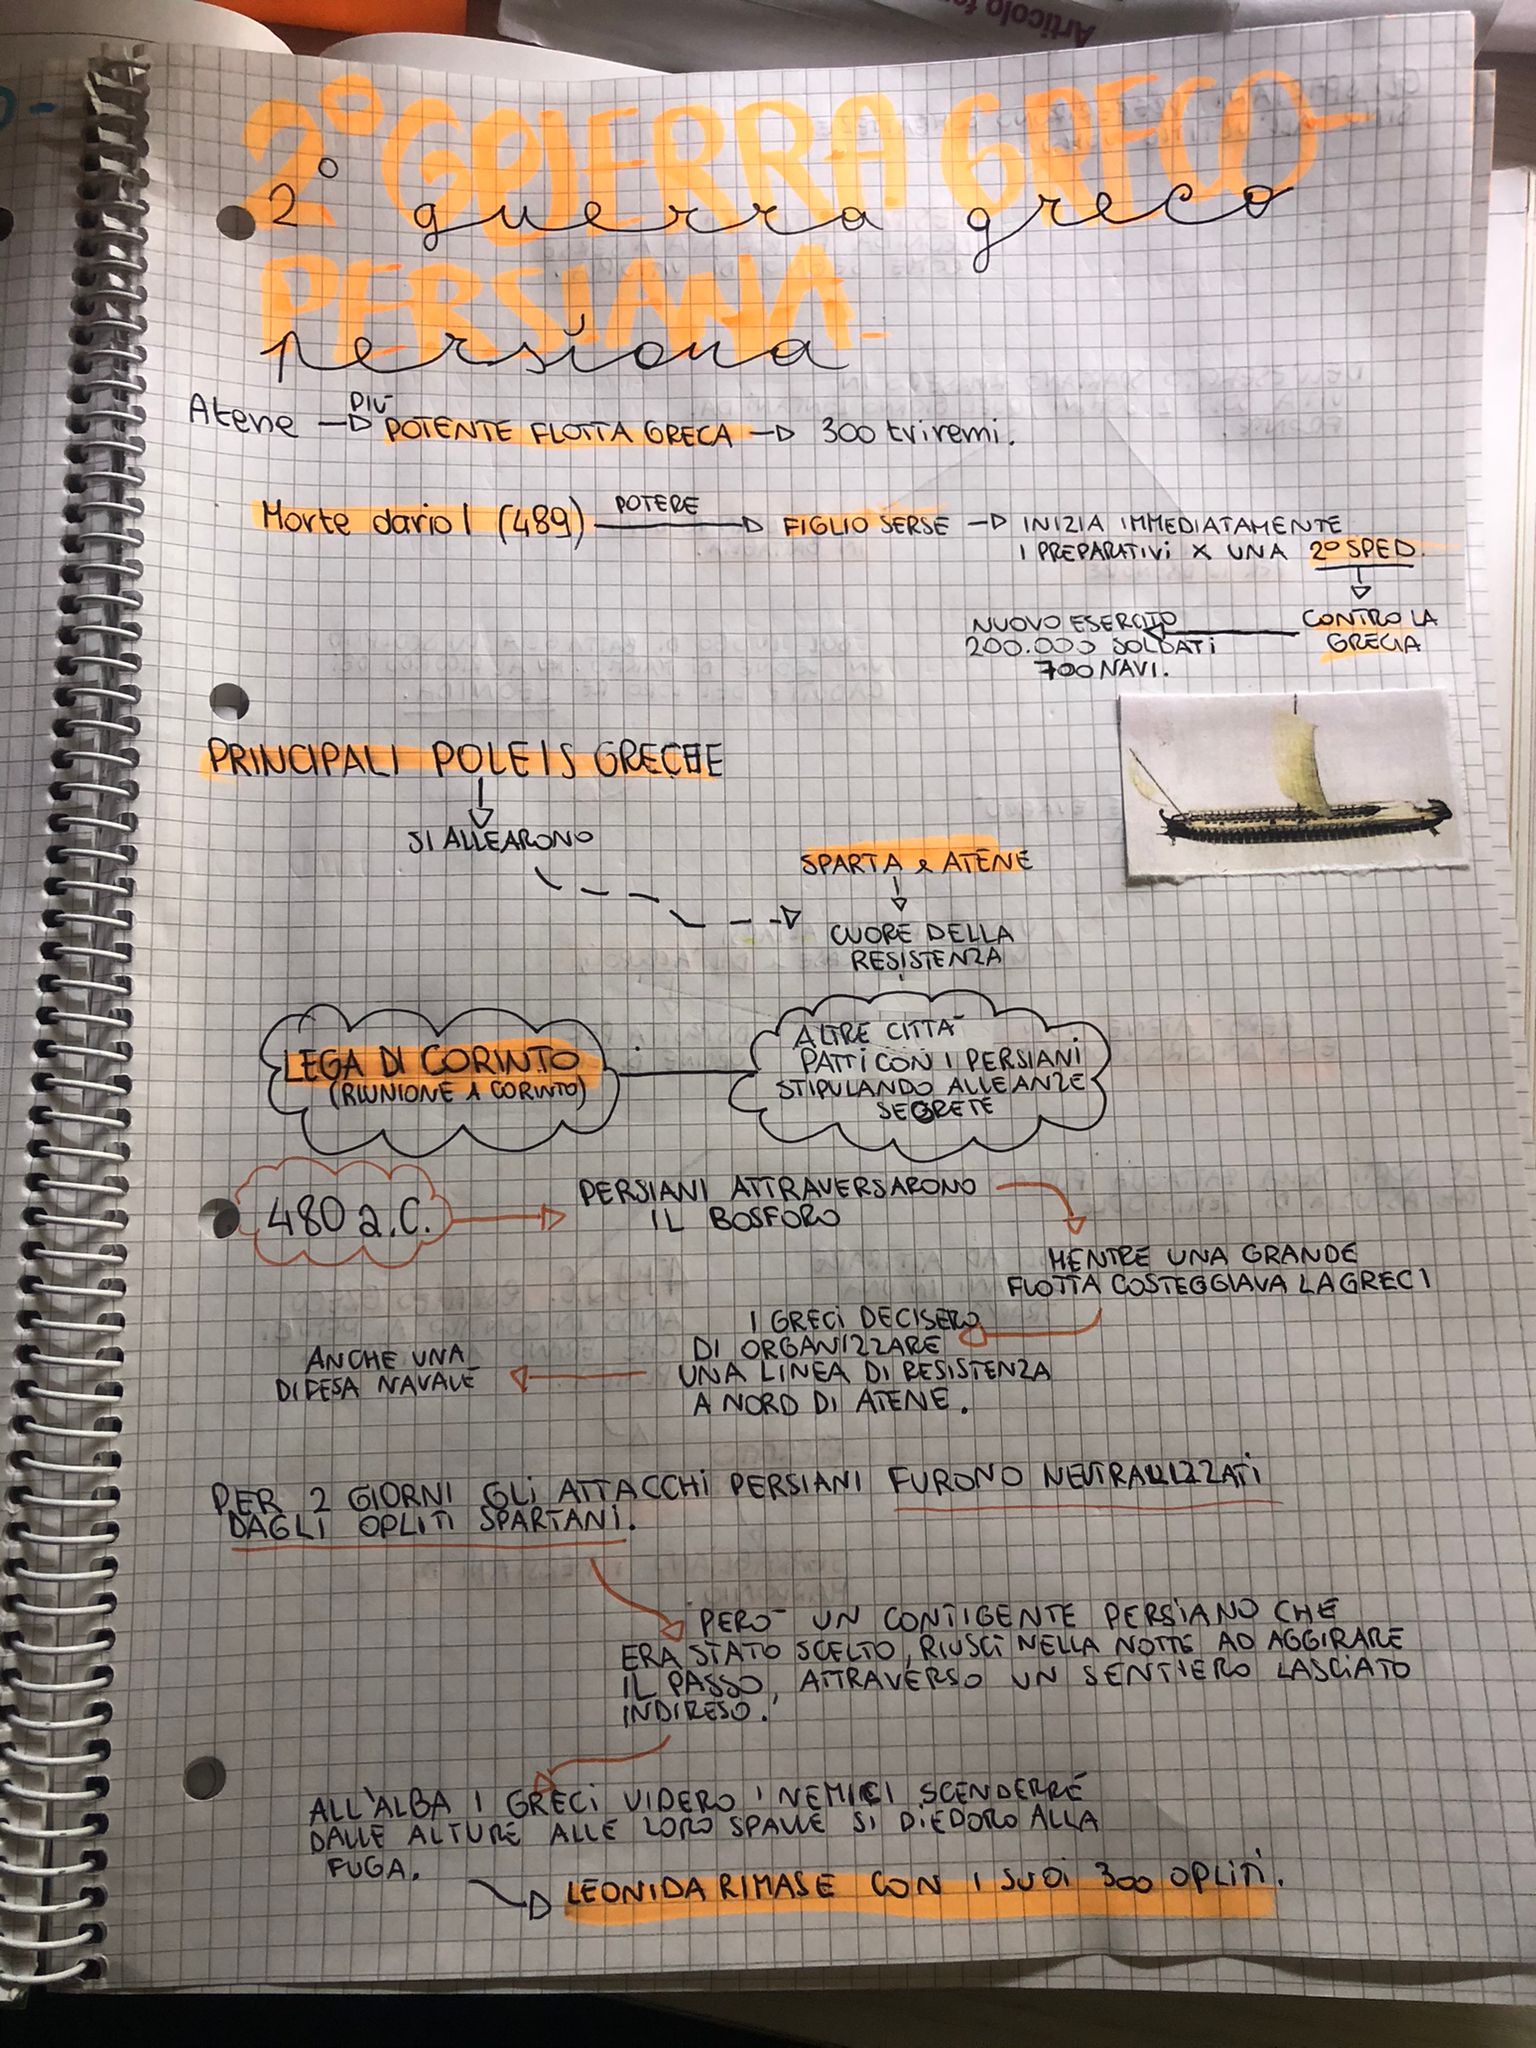 Articolo
2° GUERRA GRECO
2° guerra greco
PERSIANA
persiana
Atene → PIÙ POTENTE FLOTTA GRECA → 300 triremi.
Morte dario I (489) POTERE → FIGLIO SERSE → INIZIA IMMEDIATAMENTE
I PREPARATIVI X UNA 2° SPED.
CONTRO LA
GRECIA
NUOVO ESERCITO
200.000 SOLDATI
700 NAVI.
PRINCIPALI POLEIS GRECHE
SI ALLEARONO
SPARTA e ATENE
CUORE DELLA
RESISTENZA
LEGA DI CORINTO
(RIUNIONE A CORINTO)
ALTRE CITTÀ
PATTI CON I PERSIANI
STIPULANDO ALLEANZE
SEGRETE
480 a.C. → PERSIANI ATTRAVERSARONO
IL BOSFORO
MENTRE UNA GRANDE
FLOTTA COSTEGGIAVA LA GRECI
I GRECI DECISERO
DI ORGANIZZARE
UNA LINEA DI RESISTENZA
A NORD DI ATENE.
ANCHE UNA
DIFESA NAVALE
PER 2 GIORNI GLI ATTACCHI PERSIANI FURONO NEUTRALIZZATI
DAGLI OPLITI SPARTANI.
PERÒ UN CONTIGENTE PERSIANO CHE
ERA STATO SCELTO, RIUSCÌ NELLA NOTTE AD AGGIRARE
IL PASSO, ATTRAVERSO UN SENTIERO LASCIATO
INDIRESO.
ALL'ALBA I GRECI VIDERO I NEMICI SCENDERRE
DALLE ALTURE ALLE LORO SPALLE SI DIEDORO ALLA
FUGA.
LEONIDA RIMASE CON I SUOI 300 OPLITI.